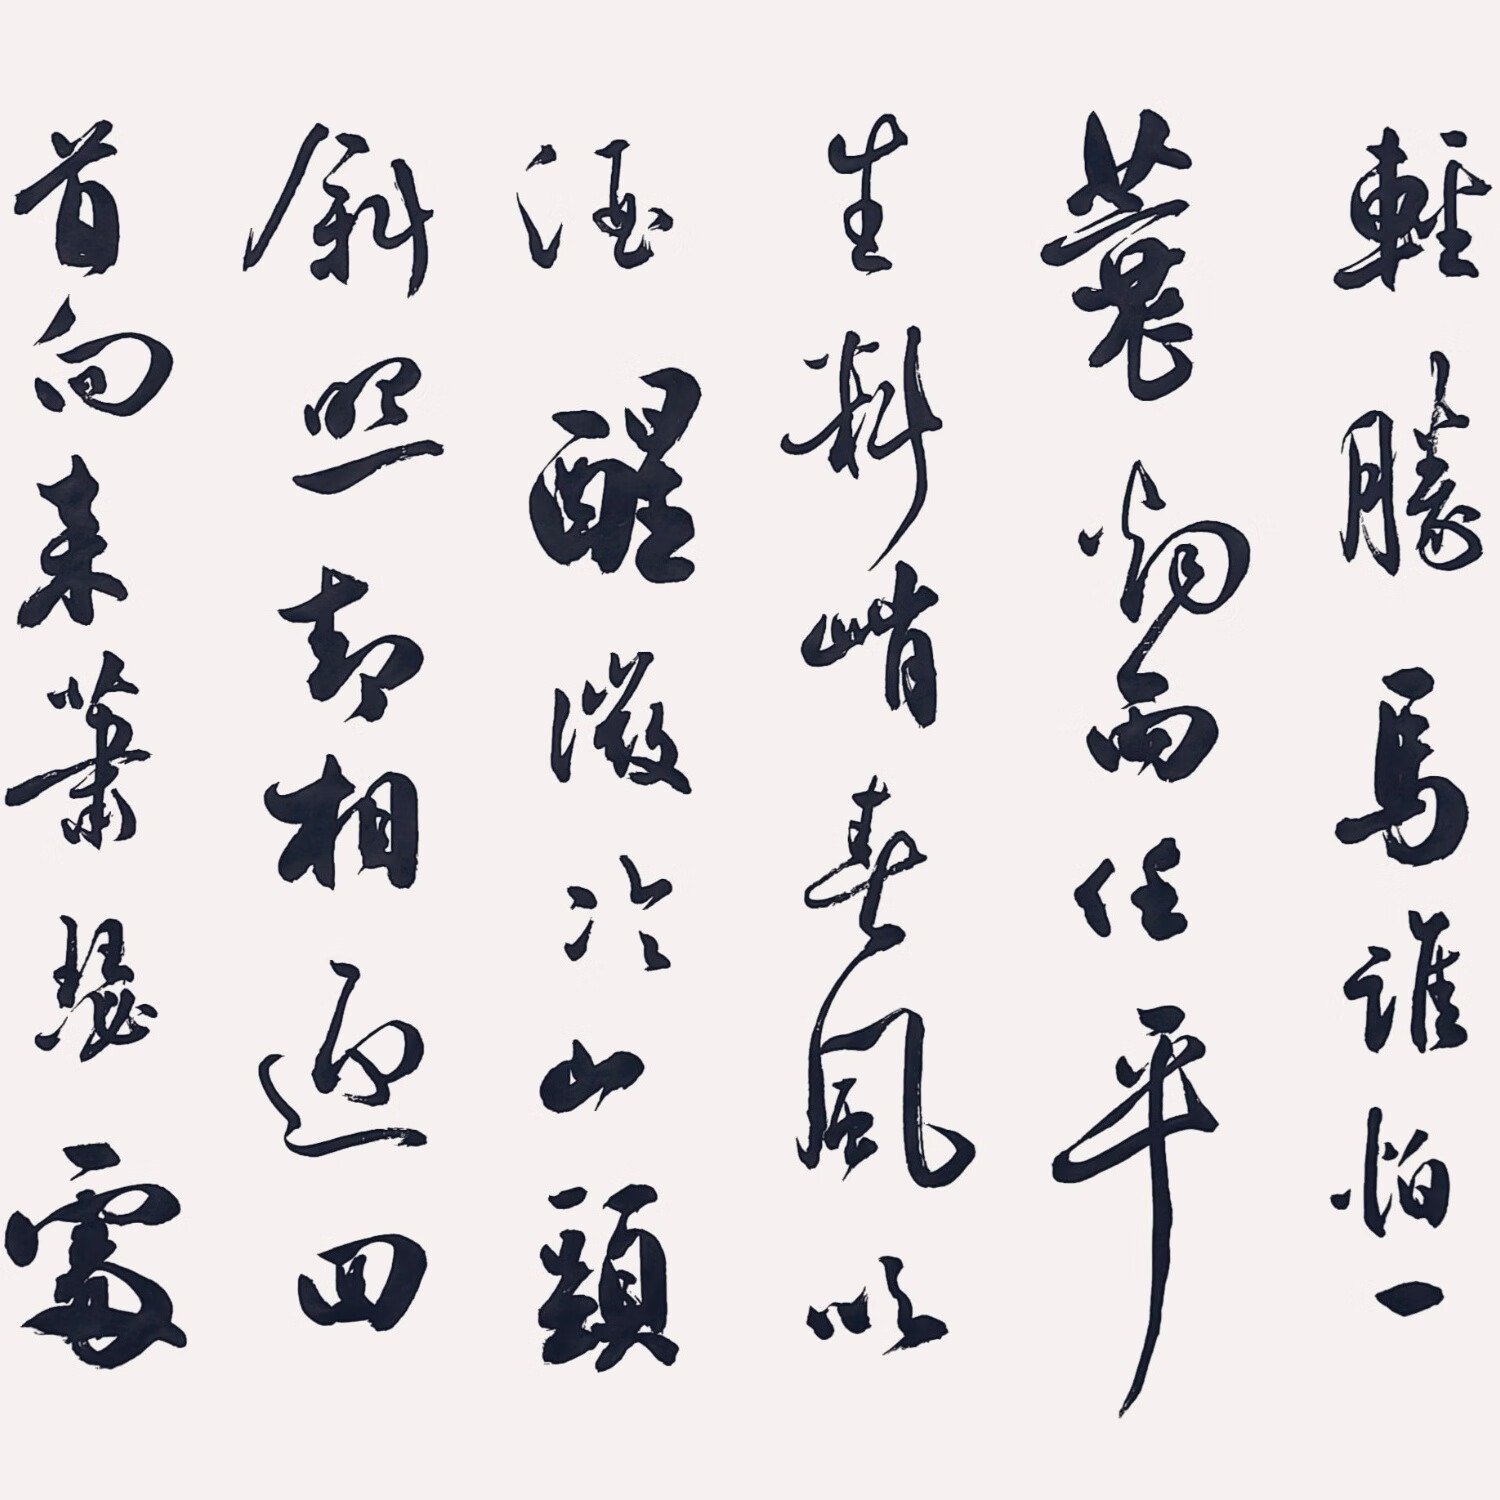 輕勝馬誰怕一
蓑烟雨任平
生料峭春風吹
酒醒微冷山頭
斜照却相迎回
首向来蕭瑟處